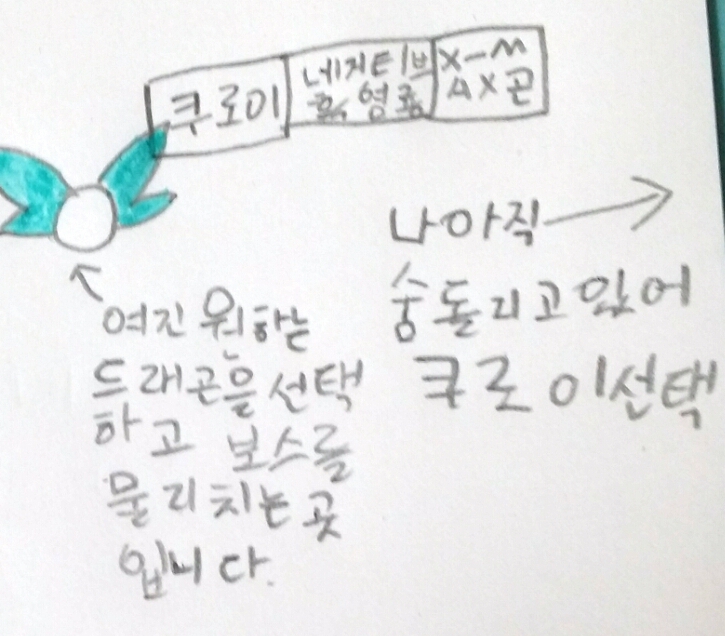 쿠로이
네거티브
흑염룡
X-M
AX곤
나아직
숭돌리고있어
쿠로이선택
여긴 원하는
드래곤을 선택
하고 보스를
물리치는 곳
입니다.